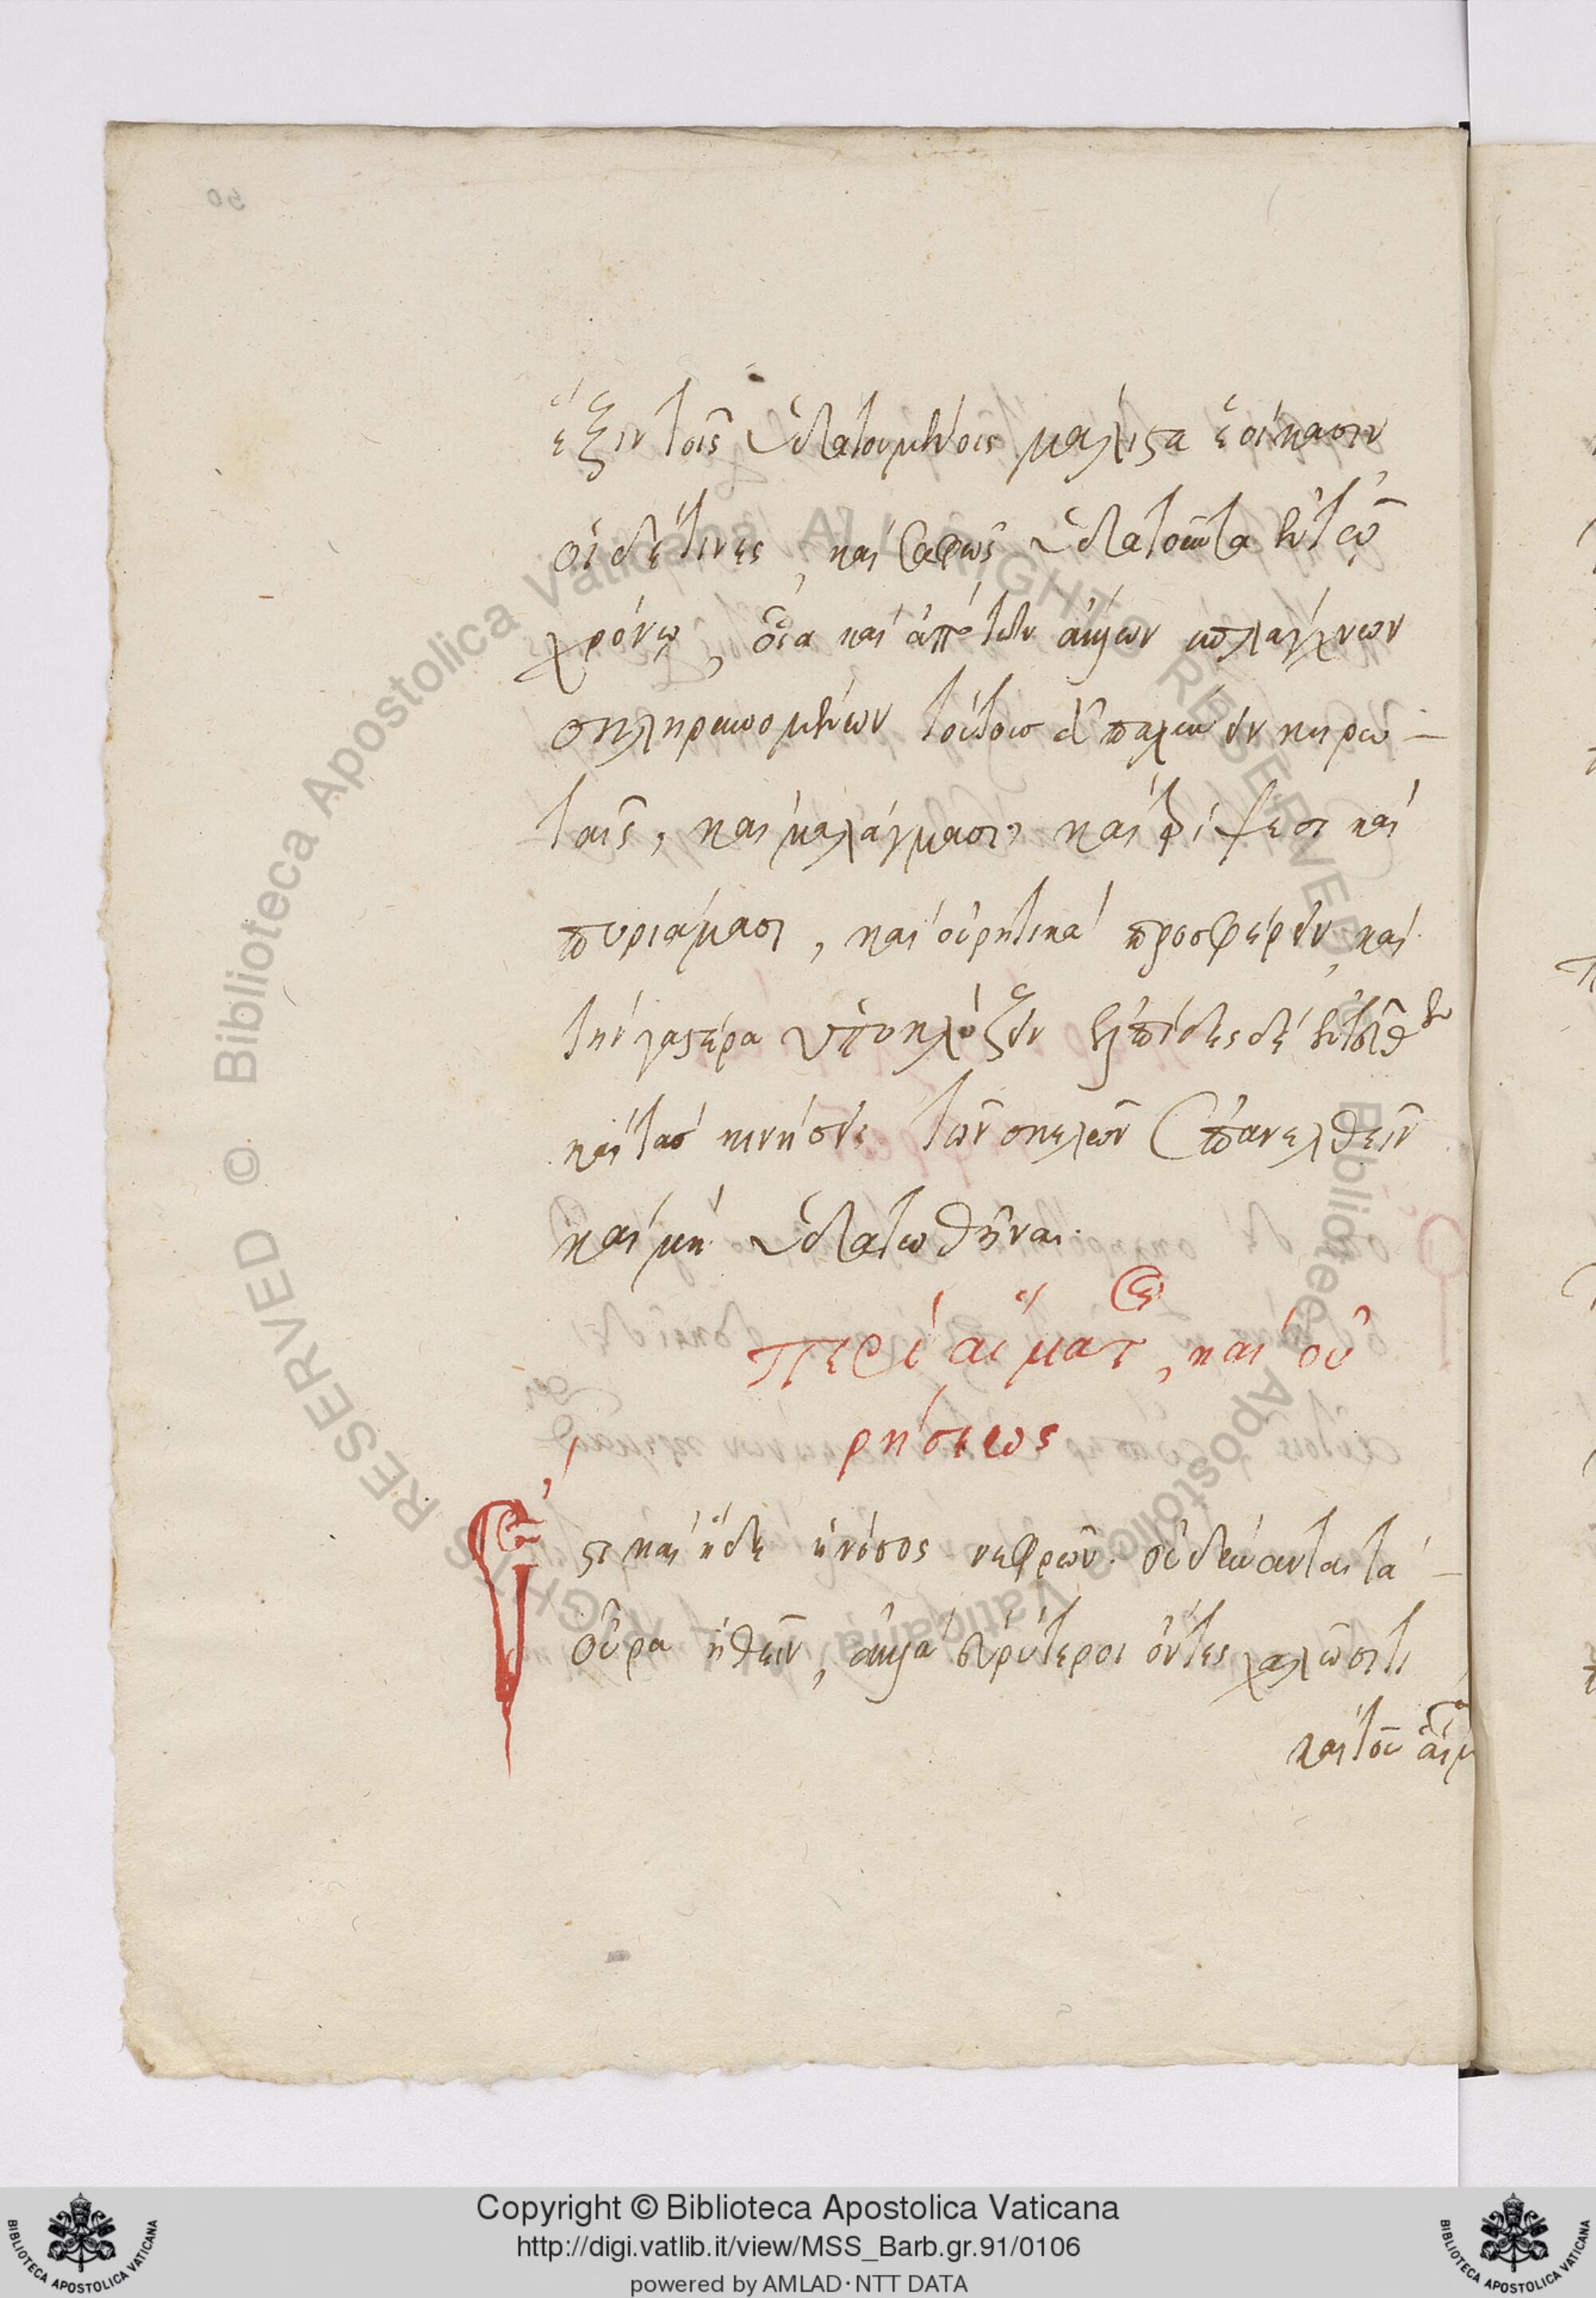 50
ἕξιν τοῖς ὑδατουμένοις μάλιστα ἐοίκασιν
οἱ δέ τινες, καὶ σαφῶς ὑδατοῦνται ἐν τῷ
χρόνῳ, οἷα καὶ ἀπὸ τῶν ἄλλων σπλάγχνων
σκληρυνομένων τούτοις ἀπαλύνειν κηρω-
ταῖς, καὶ μαλάγμασι, καὶ τρίψεσι καὶ
πυριάμασι, καὶ οὐρητικὰ προσφέρειν, καὶ
τὴν γαστέρα ὑποκλύζειν ἐλπίδες δὲ
καὶ τὰς κινήσεις τῶν σκελῶν ἐπανελθεῖν
καὶ μὴ ὑδατωθῆναι.
περὶ αἵματος, καὶ οὐ
ρήσεως
Ἔστι καὶ ἥδε ἡ νόσος νεφρῶν. οὐ δύνανται τὰ -
οὖρα ἠθεῖν, ἀλλὰ εὐρύτεροι ὄντες χαλῶσί τι
καὶ τοῦ αἵμ
Copyright © Biblioteca Apostolica Vaticana
http://digi.vatlib.it/view/MSS_Barb.gr.91/0106
powered by AMLAD·NTT DATA
BIBLIOTECA APOSTOLICA VATICANA
BIBLIOTECA APOSTOLICA VATICANA
© Biblioteca Apostolica Vaticana ALL RIGHTS RESERVED
© Biblioteca Apostolica Vaticana ALL RIGHTS RESERVED